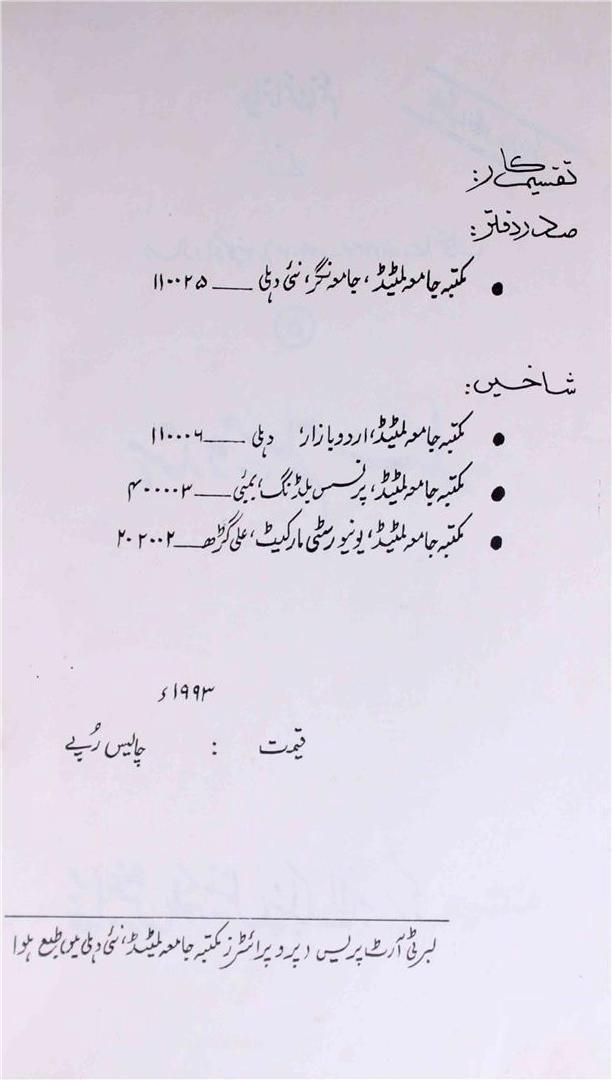 تقسیم کار:
صدر دفتر:
● مکتبہ جامعہ لمیٹڈ، جامعہ نگر، نئی دہلی ــــ ۱۱۰۰۲۵
شاخیں:
● مکتبہ جامعہ لمیٹڈ، اردو بازار، دہلی ــــ ۱۱۰۰۰۶
● مکتبہ جامعہ لمیٹڈ، پرنسس بلڈنگ، بمبئی ــــ ۴۰۰۰۰۳
● مکتبہ جامعہ لمیٹڈ، یونیورسٹی مارکیٹ، علی گڑھ ــــ ۲۰۲۰۰۲
۱۹۹۳ء
قیمت : چالیس رُپے
لبرٹی آرٹ پریس (پروپرائٹرز مکتبہ جامعہ لمیٹڈ) نئی دہلی میں طبع ہوا